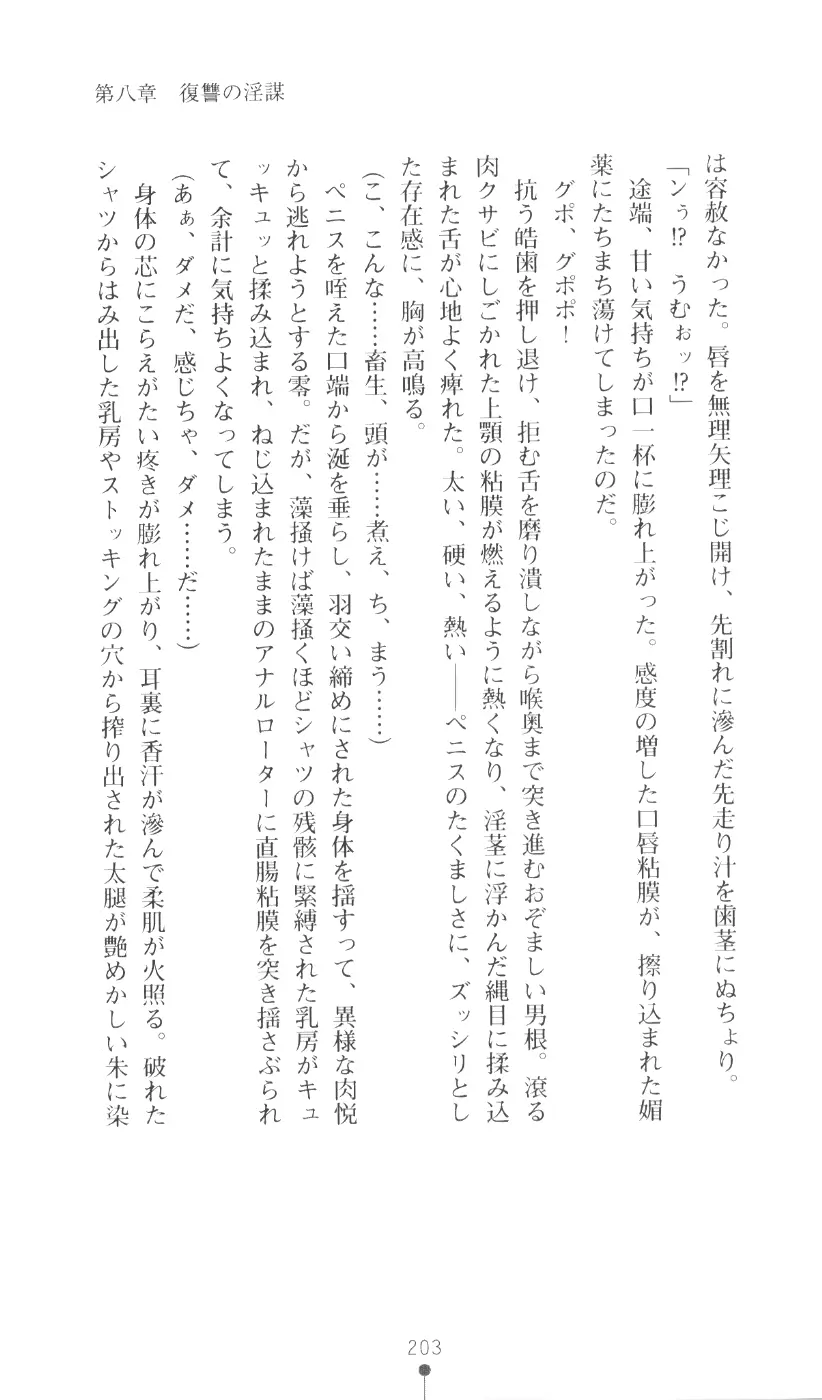 第八章　復讐の淫謀
は容赦なかった。唇を無理矢理こじ開け、先割れに滲んだ先走り汁を歯茎にぬちょり。
「ンぅ!?　うむぉッ!?」
　途端、甘い気持ちが口一杯に膨れ上がった。感度の増した口唇粘膜が、擦り込まれた媚
薬にたちまち蕩けてしまったのだ。
　グポ、グポポ！
　抗う皓歯を押し退け、拒む舌を磨り潰しながら喉奥まで突き進むおぞましい男根。滾る
肉クサビにしごかれた上顎の粘膜が燃えるように熱くなり、淫茎に浮かんだ縄目に揉み込
まれた舌が心地よく痺れた。太い、硬い、熱い――ペニスのたくましさに、ズッシリとし
た存在感に、胸が高鳴る。
（こ、こんな……畜生、頭が……煮え、ち、まう……）
　ペニスを咥えた口端から涎を垂らし、羽交い締めにされた身体を揺すって、異様な肉悦
から逃れようとする零。だが、藻掻けば藻掻くほどシャツの残骸に緊縛された乳房がキュ
ッキュッと揉み込まれ、ねじ込まれたままのアナルローターに直腸粘膜を突き揺さぶられ
て、余計に気持ちよくなってしまう。
（あぁ、ダメだ、感じちゃ、ダメ……だ……）
　身体の芯にこらえがたい疼きが膨れ上がり、耳裏に香汗が滲んで柔肌が火照る。破れた
シャツからはみ出した乳房やストッキングの穴から搾り出された太腿が艶めかしい朱に染
203